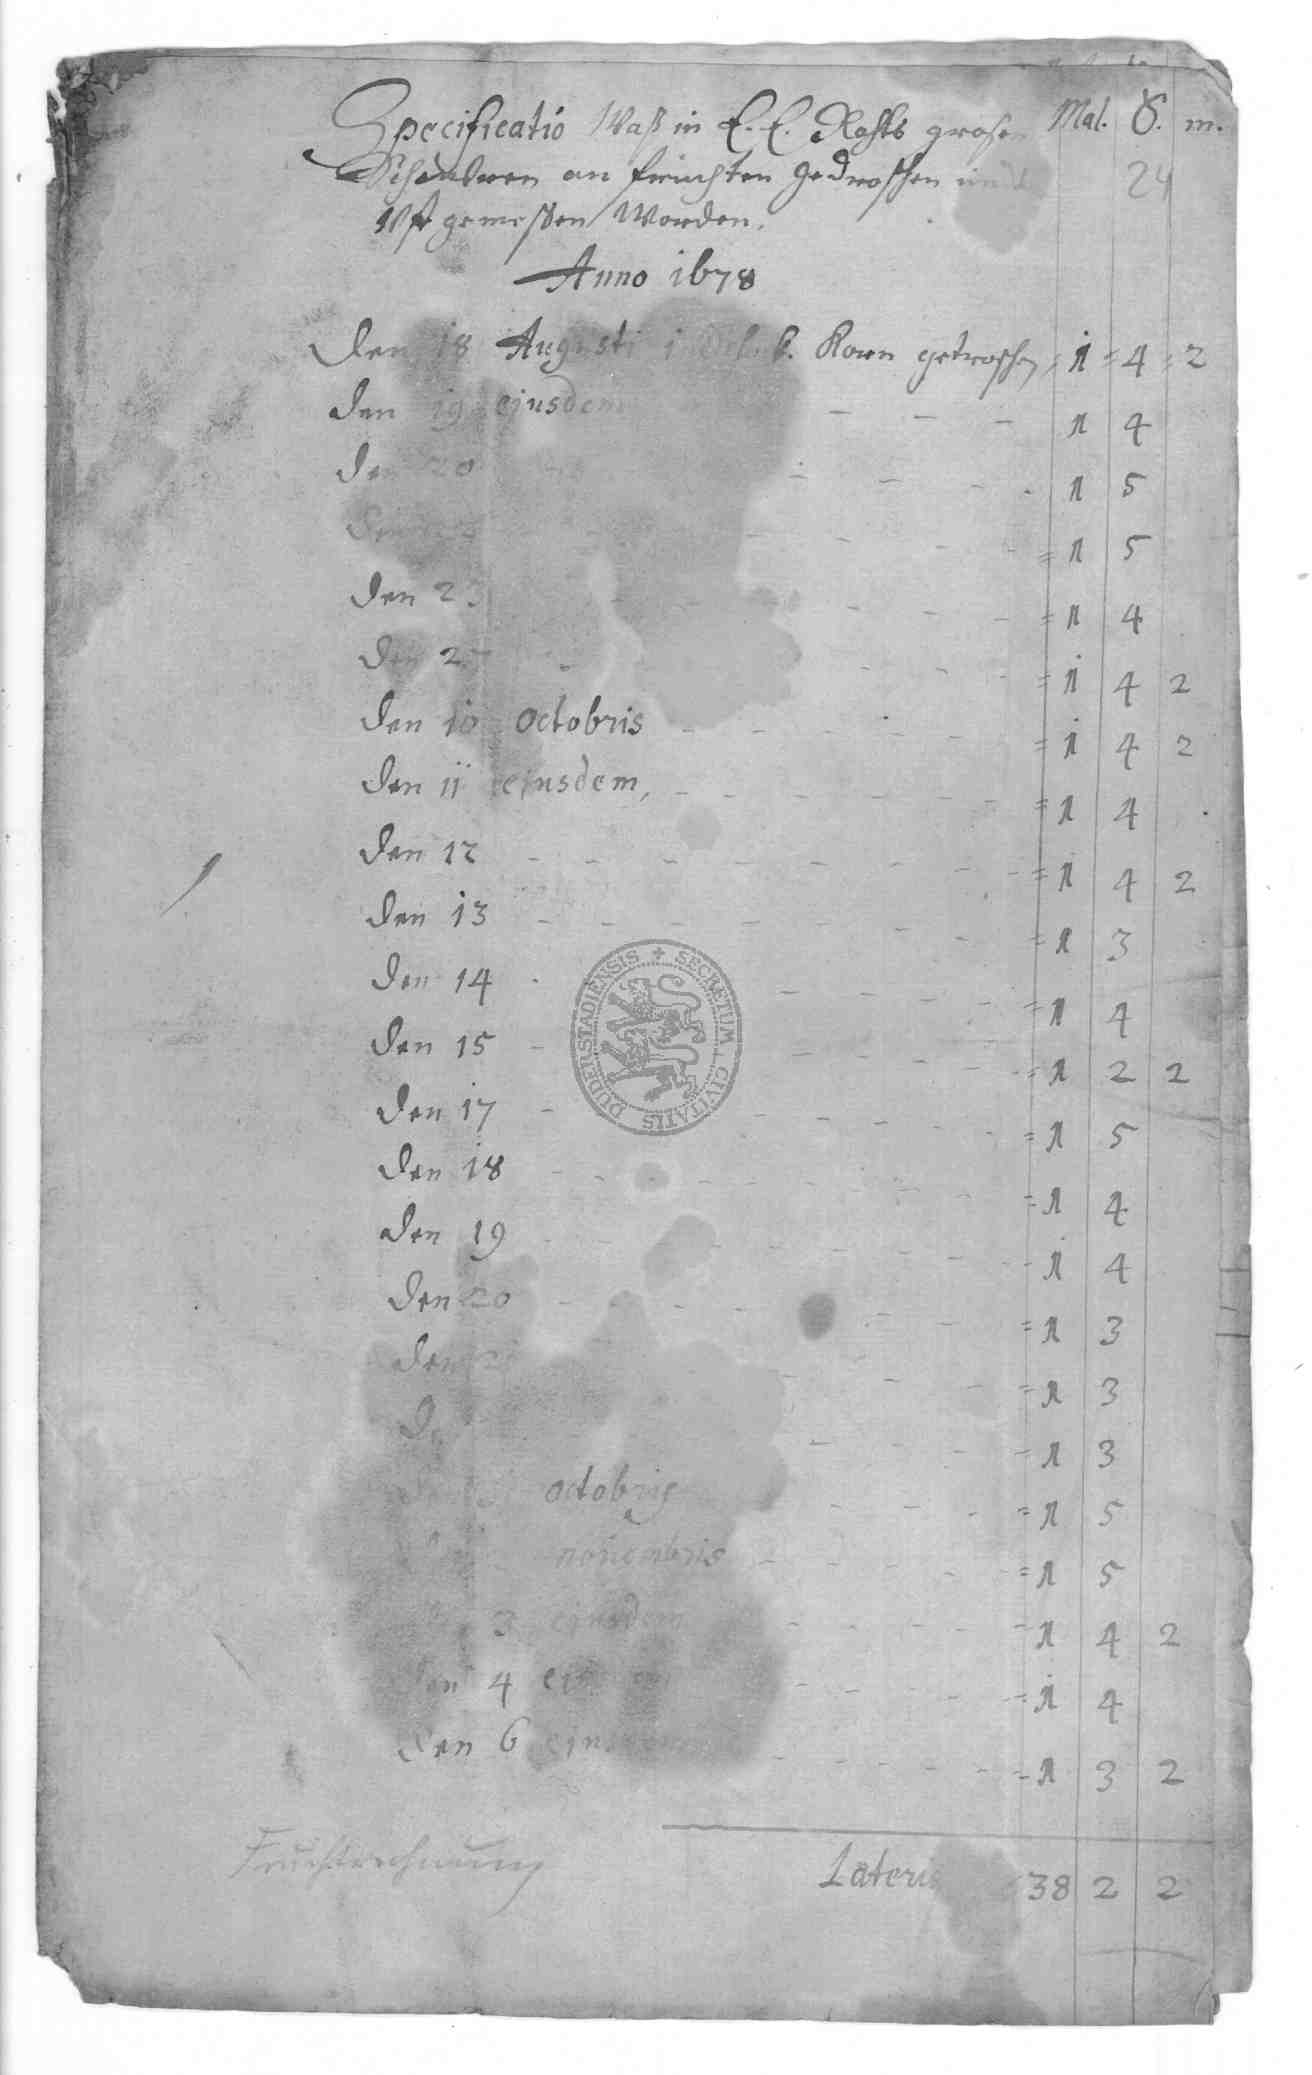 Specificatio Waß in E. E. Rahts grosen Mal. S. m.
Scheuwren an früchten gedroschen undt 24
Uff gemeßen Worden.
Anno 1678
Den 18 Augusti Korn getroschen = 1 = 4 = 2
den 19 ejusdem 1 4
den 20 1 5
1 5
den 1 4
den 1 4 2
den 10 octobris 1 4 2
den 11 ejusdem, 1 4
den 12 1 4 2
den 13 1 3
den 14 1 4
den 15 1 2 2
den 17 1 5
den 18 1 4
den 19 1 4
den 20 1 3
den 1 3
1 3
octobris 1 5
novembris 1 5
3 ejusdem 1 4 2
den 4 1 4
den 6 ejusdem 1 3 2
Lateris 38 2 2
Fruchtrechnung
DUDERSTADIENSIS + SECRETUM CIVITATIS